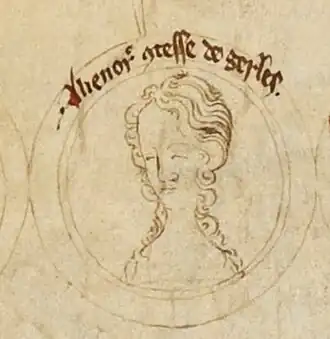 Alienor' gtesse de gerles.